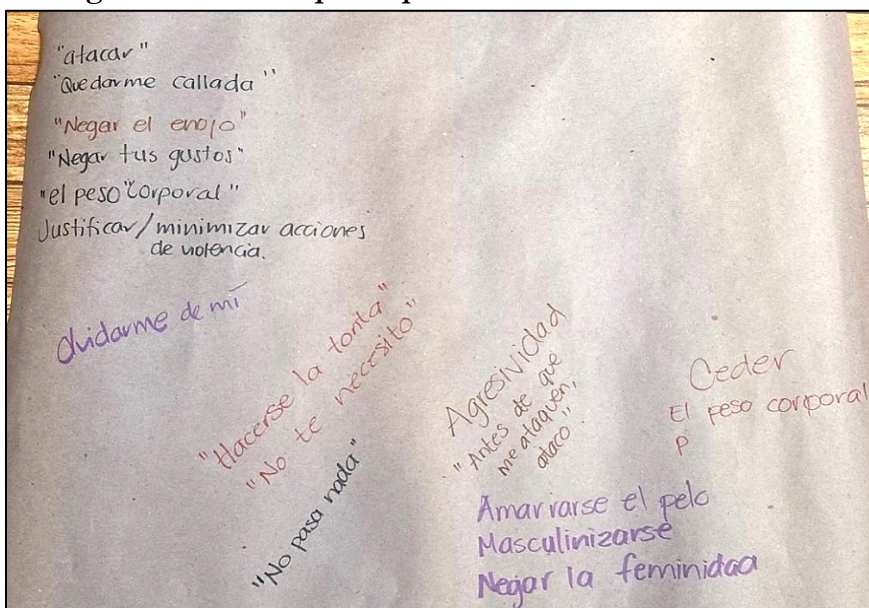 "atacar"
"Quedarme callada"
"Negar el enojo"
"Negar tus gustos"
"el peso corporal"
Justificar/minimizar acciones
de violencia.
Olvidarme de mí
"Hacerse la tonta"
"No te necesito"
"No pasa nada"
Agresividad
"Antes de que
me ataquen,
ataco".
Ceder
El peso corporal
P
Amarrarse el pelo
Masculinizarse
Negar la feminidad